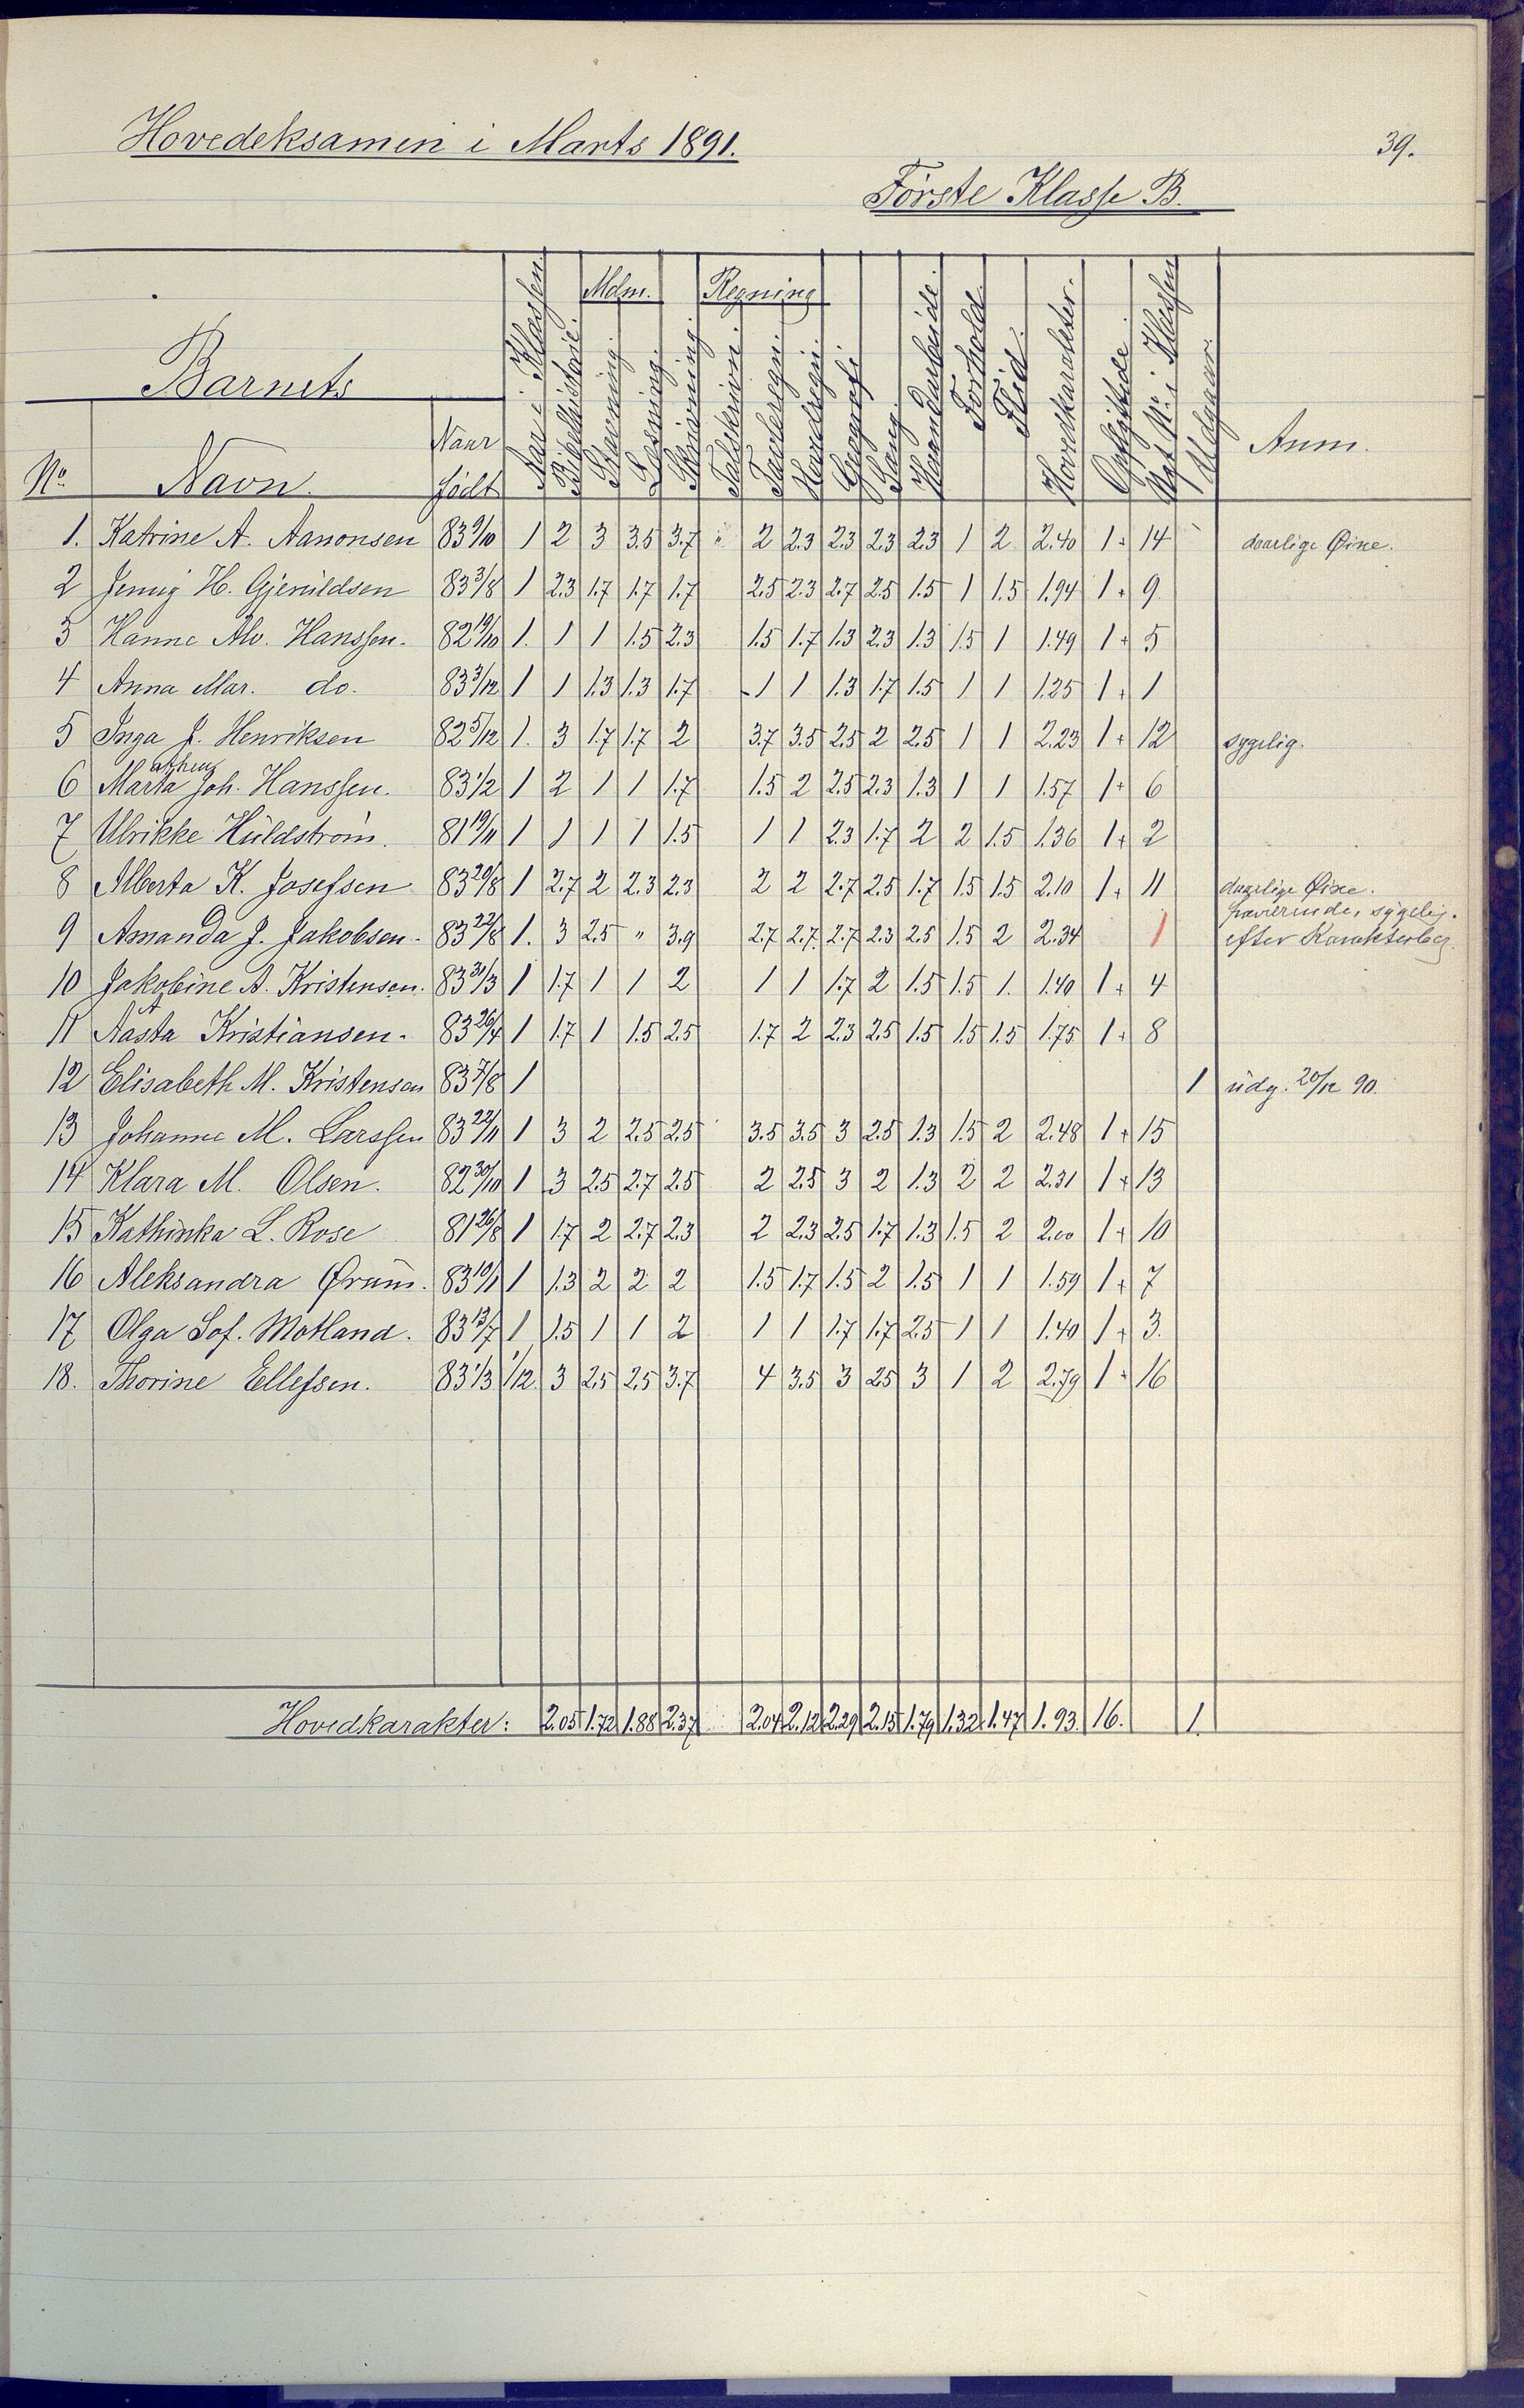 Hovedeksamen i Marts 1891.
39.
Første Klasse B.
Barnets
Mdm. Regning
No. Navn. Naar født Aar i Klassen Bibelhistorie. Stavning. Læsning. Skrivning. Talskrivn. Tavleregn. Hovedregn. Geografi. Sang. Haandarbeide. Forhold. Flid. Hovedkarakter. Opflyttede. Nyt No. i Klassen Udgaar. Anm.
1. Katrine A. Aanonsen 83 9/10 1 2 3 3.5 3.7 " 2 2.3 2.3 2.3 2.3 1 2 2.40 1+ 14 daarlige Øine.
2 Jenny H. Gjeruldsen 83 3/8 1 2.3 1.7 1.7 1.7 2.5 2.3 2.7 2.5 1.5 1 1.5 1.94 1+ 9
3 Hanne Alv. Hanssen. 82 19/10 1. 1 1 1.5 2.3 1.5 1.7 1.3 2.3 1.3 1.5 1 1.49 1+ 5
4 Anna Mar. do. 83 3/12 1 1 1.3 1.3 1.7 1 1 1.3 1.7 1.5 1 1 1.25 1+ 1
5 Inga J. Henriksen 82 5/12 1. 3 1.7 1.7 2 3.7 3.5 2.5 2 2.5 1 1 2.23 1+ 12 sygelig.
6 Marta Joh. Hanssen. 83 1/2 1 2 1 1 1.7 1.5 2 2.5 2.3 1.3 1 1 1.57 1+ 6
7 Ulrikke Huldstrøm. 81 19/11 1 1 1 1 1.5 1 1 2.3 1.7 2 2 1.5 1.36 1+ 2
8 Alberta K. Josefsen 83 29/8 1 2.7 2 2.3 2.3 2 2 2.7 2.5 1.7 1.5 1.5 2.10 1+ 11 daarlige Øine.
fraværende, sygelig.
9 Amanda J. Jakobsen. 83 22/8 1. 3 2.5 " 3.9 2.7 2.7 2.7 2.3 2.5 1.5 2 2.34 1 efter Karakterbog.
10 Jakobine A. Kristensen. 83 31/3 1 1.7 1 1 2 1 1 1.7 2 1.5 1.5 1. 1.40 1+ 4
11 Aasta Kristiansen. 83 26/4 1 1.7 1 1.5 2.5 1.7 2 2.3 2.5 1.5 1.5 1.5 1.75 1+ 8
12 Elisabeth M. Kristensen 83 7/8 1 1 udg. 20/12 90.
13 Johanne M. Larssen 83 22/11 1 3 2 2.5 2.5 3.5 3.5 3 2.5 1.3 1.5 2 2.48 1+ 15
14 Klara M. Olsen. 82 30/10 1 3 2.5 2.7 2.5 2 2.5 3 2 1.3 2 2 2.31 1+ 13
15 Kathinka L. Rose 81 26/8 1 1.7 2 2.7 2.3 2 2.3 2.5 1.7 1.3 1.5 2 2.00 1+ 10
16 Aleksandra Ørum. 83 10/1 1 1.3 2 2 2 1.5 1.7 1.5 2 1.5 1 1 1.59 1+ 7
17 Olga Sof. Motland. 83 13/7 1 1.5 1 1 2 1 1 1.7 1.7 2.5 1 1 1.40 1+ 3.
18. Thorine Ellefsen. 83 1/3 1/12 3 2.5 2.5 3.7 4 3.5 3 2.5 3 1 2 2.79 1+ 16
Hovedkarakter: 2.05 1.72 1.88 2.37 2.04 2.12 2.29 2.15 1.79 1.32 1.47 1.93. 16. 1.